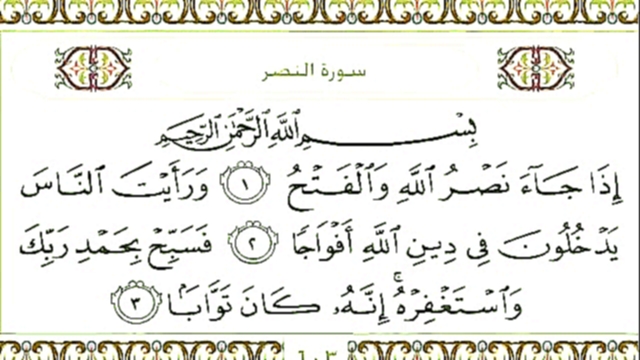 سورة النصر
بِسْمِ اللَّهِ الرَّحْمَٰنِ الرَّحِيمِ
إِذَا جَآءَ نَصْرُ ٱللَّهِ وَٱلْفَتْحُ ١ وَرَأَيْتَ ٱلنَّاسَ
يَدْخُلُونَ فِى دِينِ ٱللَّهِ أَفْوَاجًا ٢ فَسَبِّحْ بِحَمْدِ رَبِّكَ
وَٱسْتَغْفِرْهُ ۚ إِنَّهُۥ كَانَ تَوَّابًۢا ٣